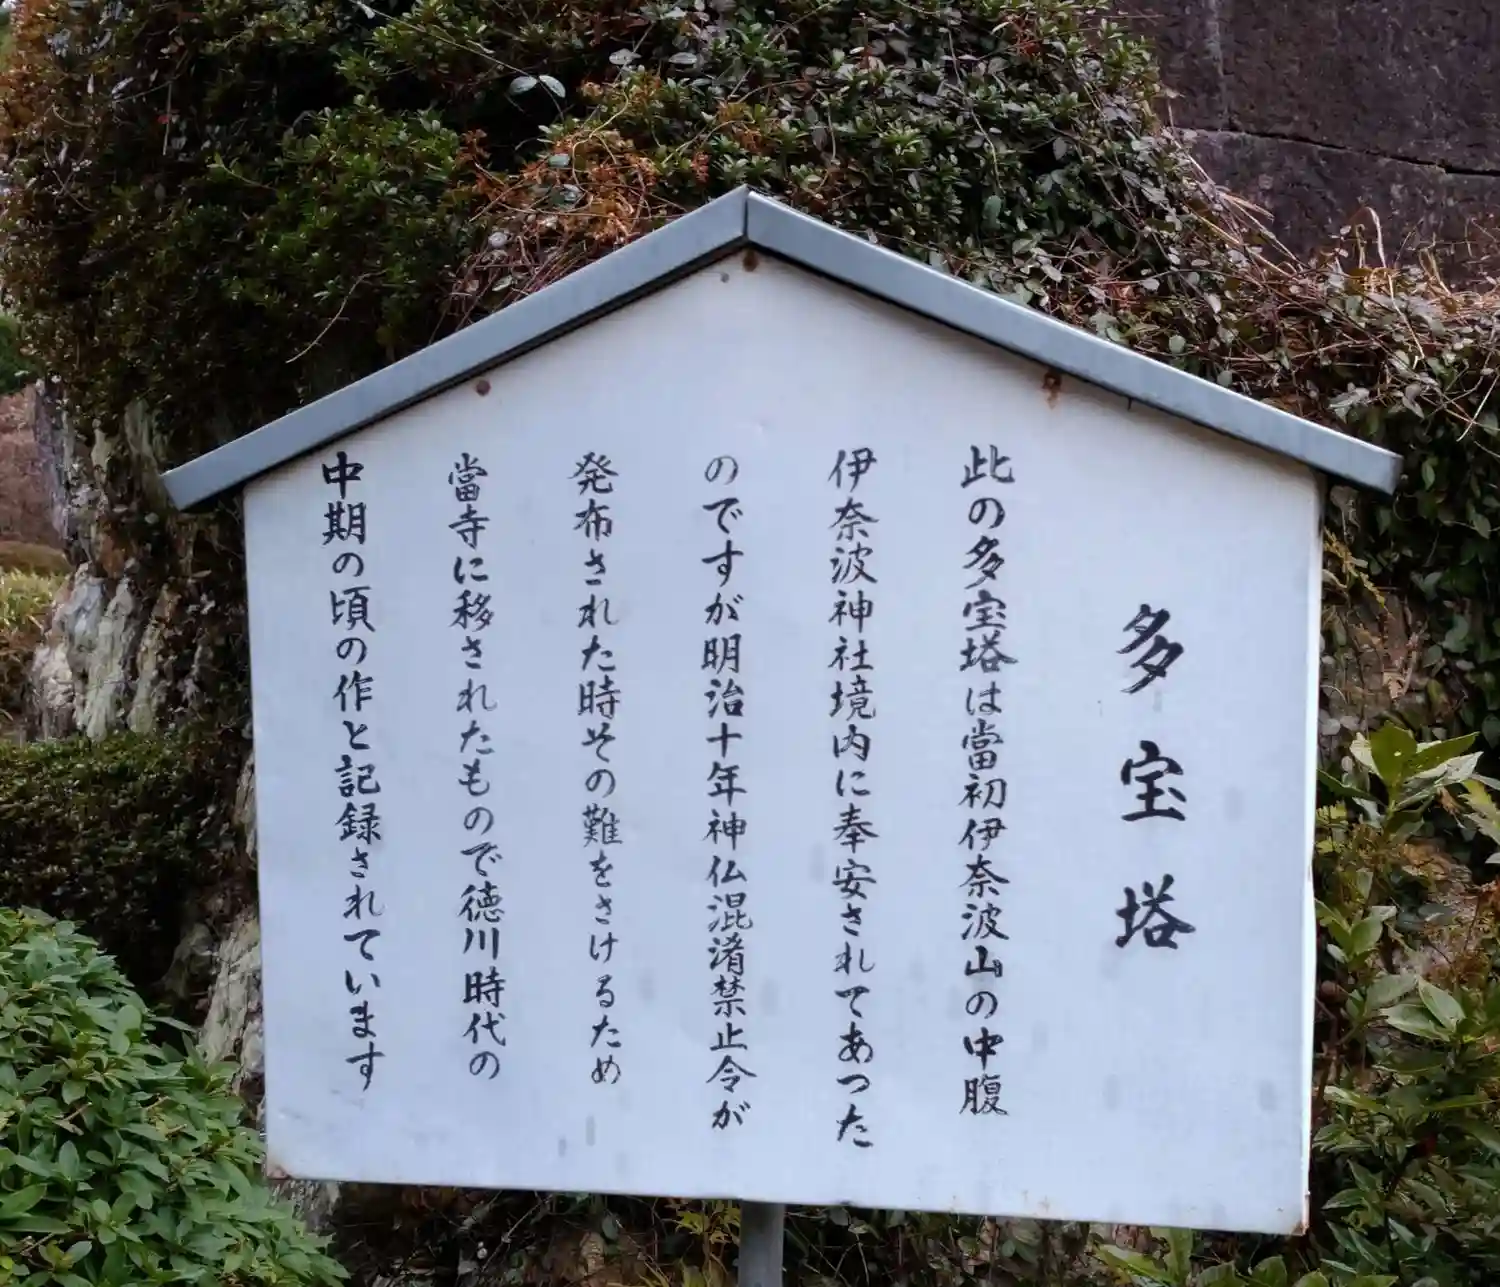 多宝塔
此の多宝塔は當初伊奈波山の中腹
伊奈波神社境内に奉安されてあつた
のですが明治十年神仏混淆禁止令が
発布された時その難をさけるため
當寺に移されたもので徳川時代の
中期の頃の作と記録されています